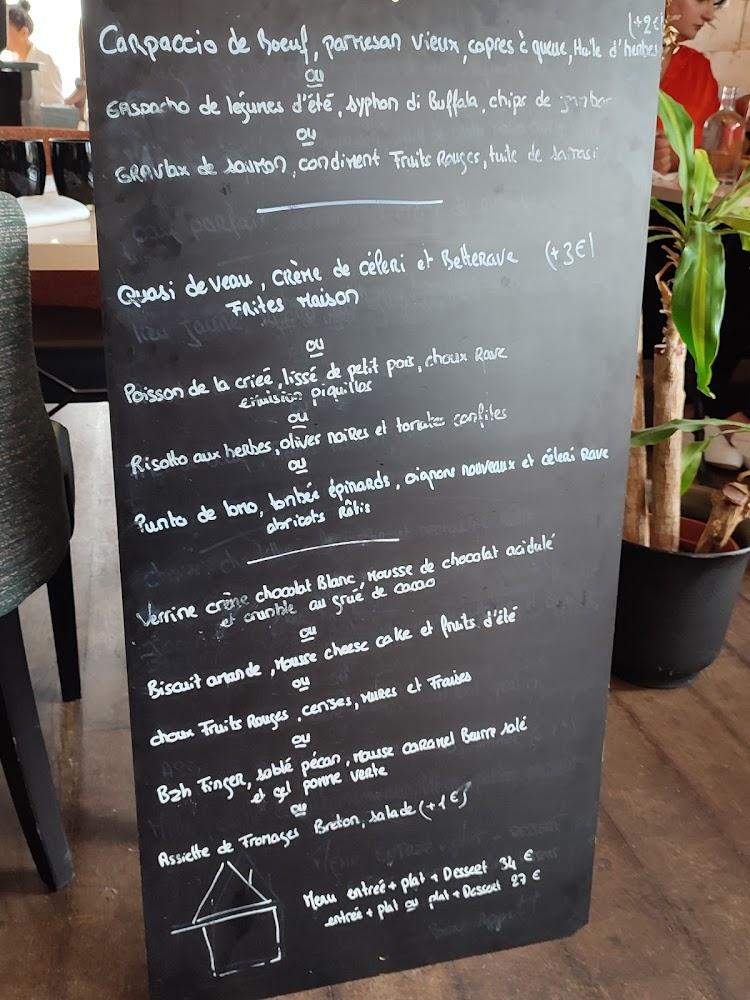 (+2€)
Carpaccio de Boeuf, parmesan vieux, capres à queue, Huile d'herbes
ou
GASPacho de légumes d'été, syphon di Buffala, chips de jambon
ou
GRAVlax de saumon, condiment Fruits Rouges, tuile de
Quasi de veau, crème de céleri et Betterave (+3€)
Frites Maison
ou
Poisson de la criée, lissé de petit pois, choux Rave
émulsion piquillos
ou
Risotto aux herbes, olives noires et tomates confites
ou
épinards, oignons nouveaux et céleri Rave
abricots Rôtis
Verrine crème chocolat Blanc, Mousse de chocolat acidulé
et crumble au grué de cacao
ou
Biscuit amande, Mousse cheese cake et fruits d'été
ou
choux Fruits Rouges, cerises, mures et Fraises
ou
Bzh Finger, sablé pécan, mousse caramel Beurre salé
et gel pomme verte
ou
Assiette de Fromages Breton, salade (+1€)
Menu entrée + plat + Dessert 34 €
entrée + plat ou plat + Dessert 27 €